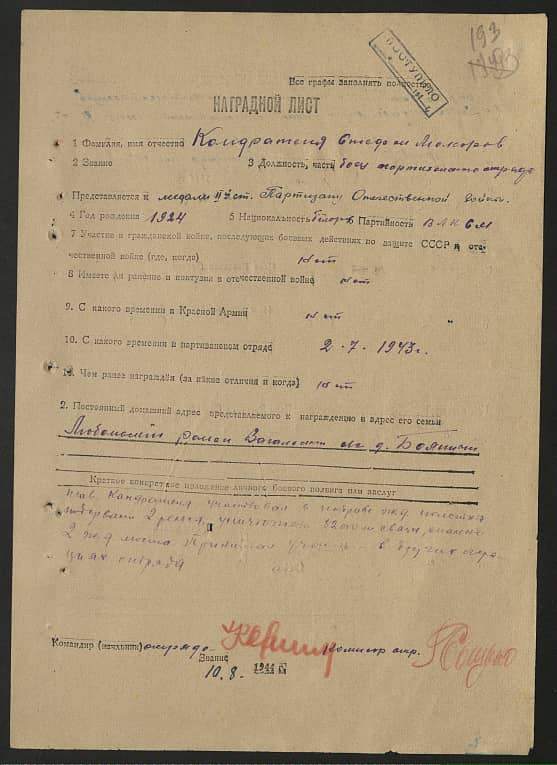 193
ПОСТУПИЛО
Все графы заполнять полностью
НАГРАДНОЙ ЛИСТ
1 Фамилия, имя отчество Кондратеня
2 Звание 3 Должность, часть боец партизанского отряда
Представляется к медали II й ст. Партизану Отечественной войны.
4 Год рождения 1924 5 Национальность белорус Партийности ВЛКСМ
7 Участие в гражданской войне, последующих боевых действиях по защите СССР и оте-
чественной войне (где, когда) нет
8 Имеете ли ранение и контузия в отечественной войне нет
9. С какого времени в Красной Армии нет
10. С какого времени в партизанском отряде 2-7-1943г.
11. Чем ранее награждён (за какие отличия и когда) нет
2. Постоянный домашний адрес представляемого к награждению и адрес его семьи
район д.
Краткое конкретное изложение личного боевого подвига или заслуг
Кандратеня участвовал в жд. полотна
2 рельса, уничтожении связи,
2 жд моста Принимал участие в других опера-
циях отряда
Командир (начальник) отряда Комисар отр.
Звание
10.8. 1944 г.